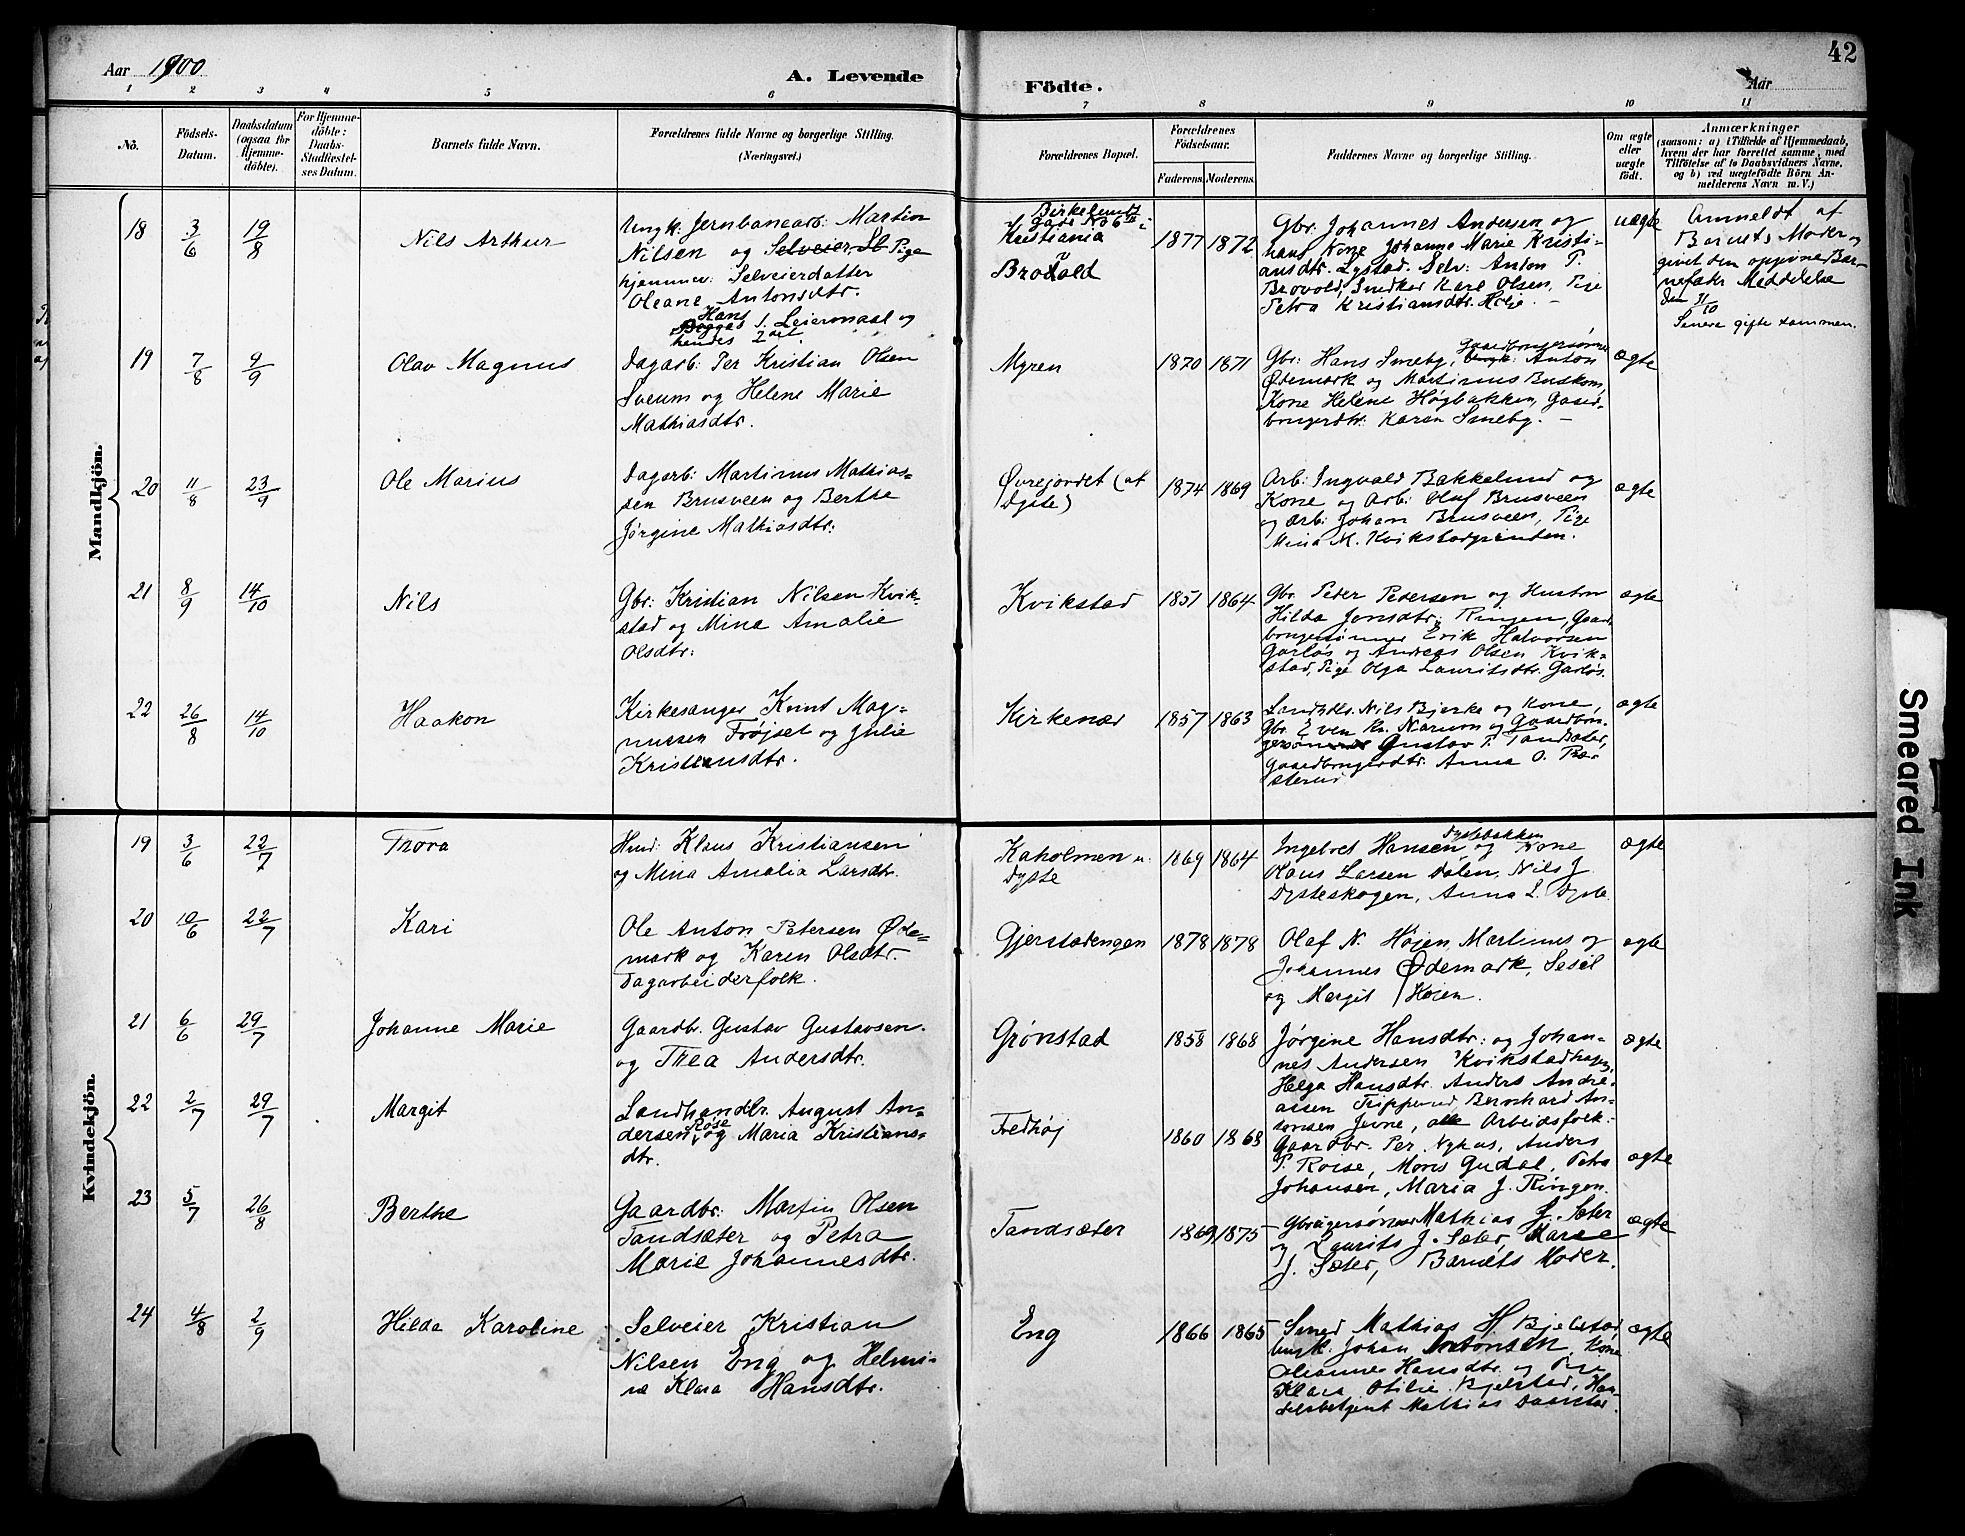 Aar 1900
A. Levende
Födte.
Aar
42
1 2 3 4 5 6 7 8 9 10 11
Nö.
Födsels-
Datum.
Daabsdatum
(ogsaa for
Hjemme-
döbte).
For Hjemme-
döbte:
Daabs-
Stadfæstel-
ses Datum.
Barnets fulde Navn.
Forældrenes fulde Navne og borgerlige Stilling.
(Næringsvei.)
Forældrenes Bopæl.
Forældrenes
Födselsaar.
Faderens. Moderens.
Faddernes Navne og borgerlige Stilling.
Om ægte
eller
uægte
födt.
Anmærkninger
(saasom: a) i Tilfælde af Hjemmedaab,
hvem der har forrettet samme, med
Tilföielse af to Daabsvidners Navne,
og b) ved uægtefödte Börn An-
melderens Navn m. V.)
Mandkjön.
18
3/6
19/8
Nils Arthur
Ungk. Jernbanearb: Martin
Nilsen og Pige
hjemmev: Selveierdatter
Oleane Antonsdtr.
Hans
1. Leiermaal og
hendes 2det.
Kristiania
Brovold
1877
1872
Gbr. Johannes Andersen og
hans Kone Johanne Marie Kristi-
ansdtr. Lystad. Selv: Anton P.
Brovold, Snedker Karl Olsen, Pige
Petra Kristiansdtr. Høie. –
uægte
Anmeldt af
Barnets Moder og
givet den opgivne Bar-
nefader Meddelelse
den 31/10
Senere gifte sammen.
19
7/8
9/9
Olav Magnus
Dagarb: Per Kristian Olsen
Sveum og Helene Marie
Mathiasdtr.
Myren
1870
1871
Gbr: Hans Smeby, Gaardbrugersønner Anton
Ødemark og Martinus Buskom,
Kone Helene Høgbakken, Gaard-
brugerdtr. Karen Smeby. –
ægte
20
11/8
23/9
Ole Marius
Dagarb: Martinus Mathias-
sen Brusveen og Berthe
Jørgine Mathiasdtr:
Øvrejordet (at
Dyste)
1874
1869
Arb: Ingvald Bakkelund og
Kone og Arb: Oluf Brusveen
og Arb: Johan Brusveen, Pige
Mina M. Kvikstadgrinden.
ægte
21
8/9
14/10
Nils
Gbr: Kristian Nilsen Kvik-
stad og Mina Amalie
Olsdtr:
Kvikstad
1851
1864
Gbr. Peder Pedersen og Hustru
Hilda Jonsdtr: Ringen, Gaard-
brugersønner Erik Halvorsen
Garløs og Andreas Olsen Kvik-
stad, Pige Olga Lauritsdtr. Garløs.
ægte
22
26/8
14/10
Haakon
Kirkesanger Knut Mag-
nussen Frøjset og Julie
Kristiansdtr.
Kirkenær
1857
1863
Landhdlr. Nils Bjerke og Kone,
Gbr. Even Kr. Narum og Gaardbru-
gersøn Gustav P. Tandsæter,
Gaardbrugerdtr. Anna O. Præ-
sterud
ægte
Kvindekjön.
19
3/6
22/7
Thora
Husm: Klaus Kristiansen
og Mina Amalia Larsdtr.
Kaholmen u.
Dyste
1869
1864
Ingebret Hansen Dystebakken og Kone
Olaus Larsen Dalen, Nils J.
Dysteskogen, Anna L. Dyste
ægte
20
10/6
22/7
Kari
Ole Anton Petersen Øde-
mark og Karen Olsdtr.
Dagarbeiderfolk.
Gjerstadengen
1878
1878
Olaf N. Høien, Martinus og
Johannes Ødemark, Sesil
og Margit Høien.
ægte
21
6/6
29/7
Johanne Marie
Gaardbr. Gustav Gustavsen
og Thea Andersdtr.
Grønstad
1858
1868
Jørgine Hansdtr: og Johan-
nes Andersen Kvikstadhagen,
Helga Hansdtr. Anders Andre-
assen Tripperud Bernhard An-
tonsen Jevne, alle Arbeidsfolk.
ægte
22
2/7
29/7
Margit
Landhandlr. August An-
dersen Røise og Maria Kristians-
dtr.
Fredhøj
1860
1868
Gaardbr. Per Nyhus, Anders
P. Roise, Mons Gudal, Petra
Johansen, Maria J. Ringen.
ægte
23
5/7
26/8
Berthe
Gaardbr: Martin Olsen
Tandsæter og Petra
Marie Johannesdtr.
Tandsæter
1869
1875
Gbrugersønner Mathias J. Sæter
og Laurits J. Sæter, Maree
J. Sæter, Barnets Moder.
ægte
24
4/8
2/9
Hilda Karoline
Selveier Kristian
Nilsen Eng og Helmi-
ne Klara Hansdtr.
Eng
1866
1865
Smed Mathias H. Bjelstad,
Ungk. Johan Antonsen, Kone
Oleanne Hansdtr. og Pige
Klara Otilie Bjelstad, Han-
delsbetjent Mathias
ægte
Smeared Ink